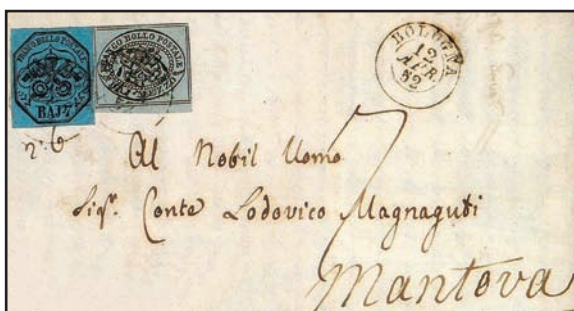 FRANCO BOLLO POSTALE
BAJ 7
FRANCO BOLLO POSTALE
BOLOGNA
12
APR.
62
n. 6
Al Nobil Uomo
Sigr. Conte Lodovico Magnaguti
Mantova